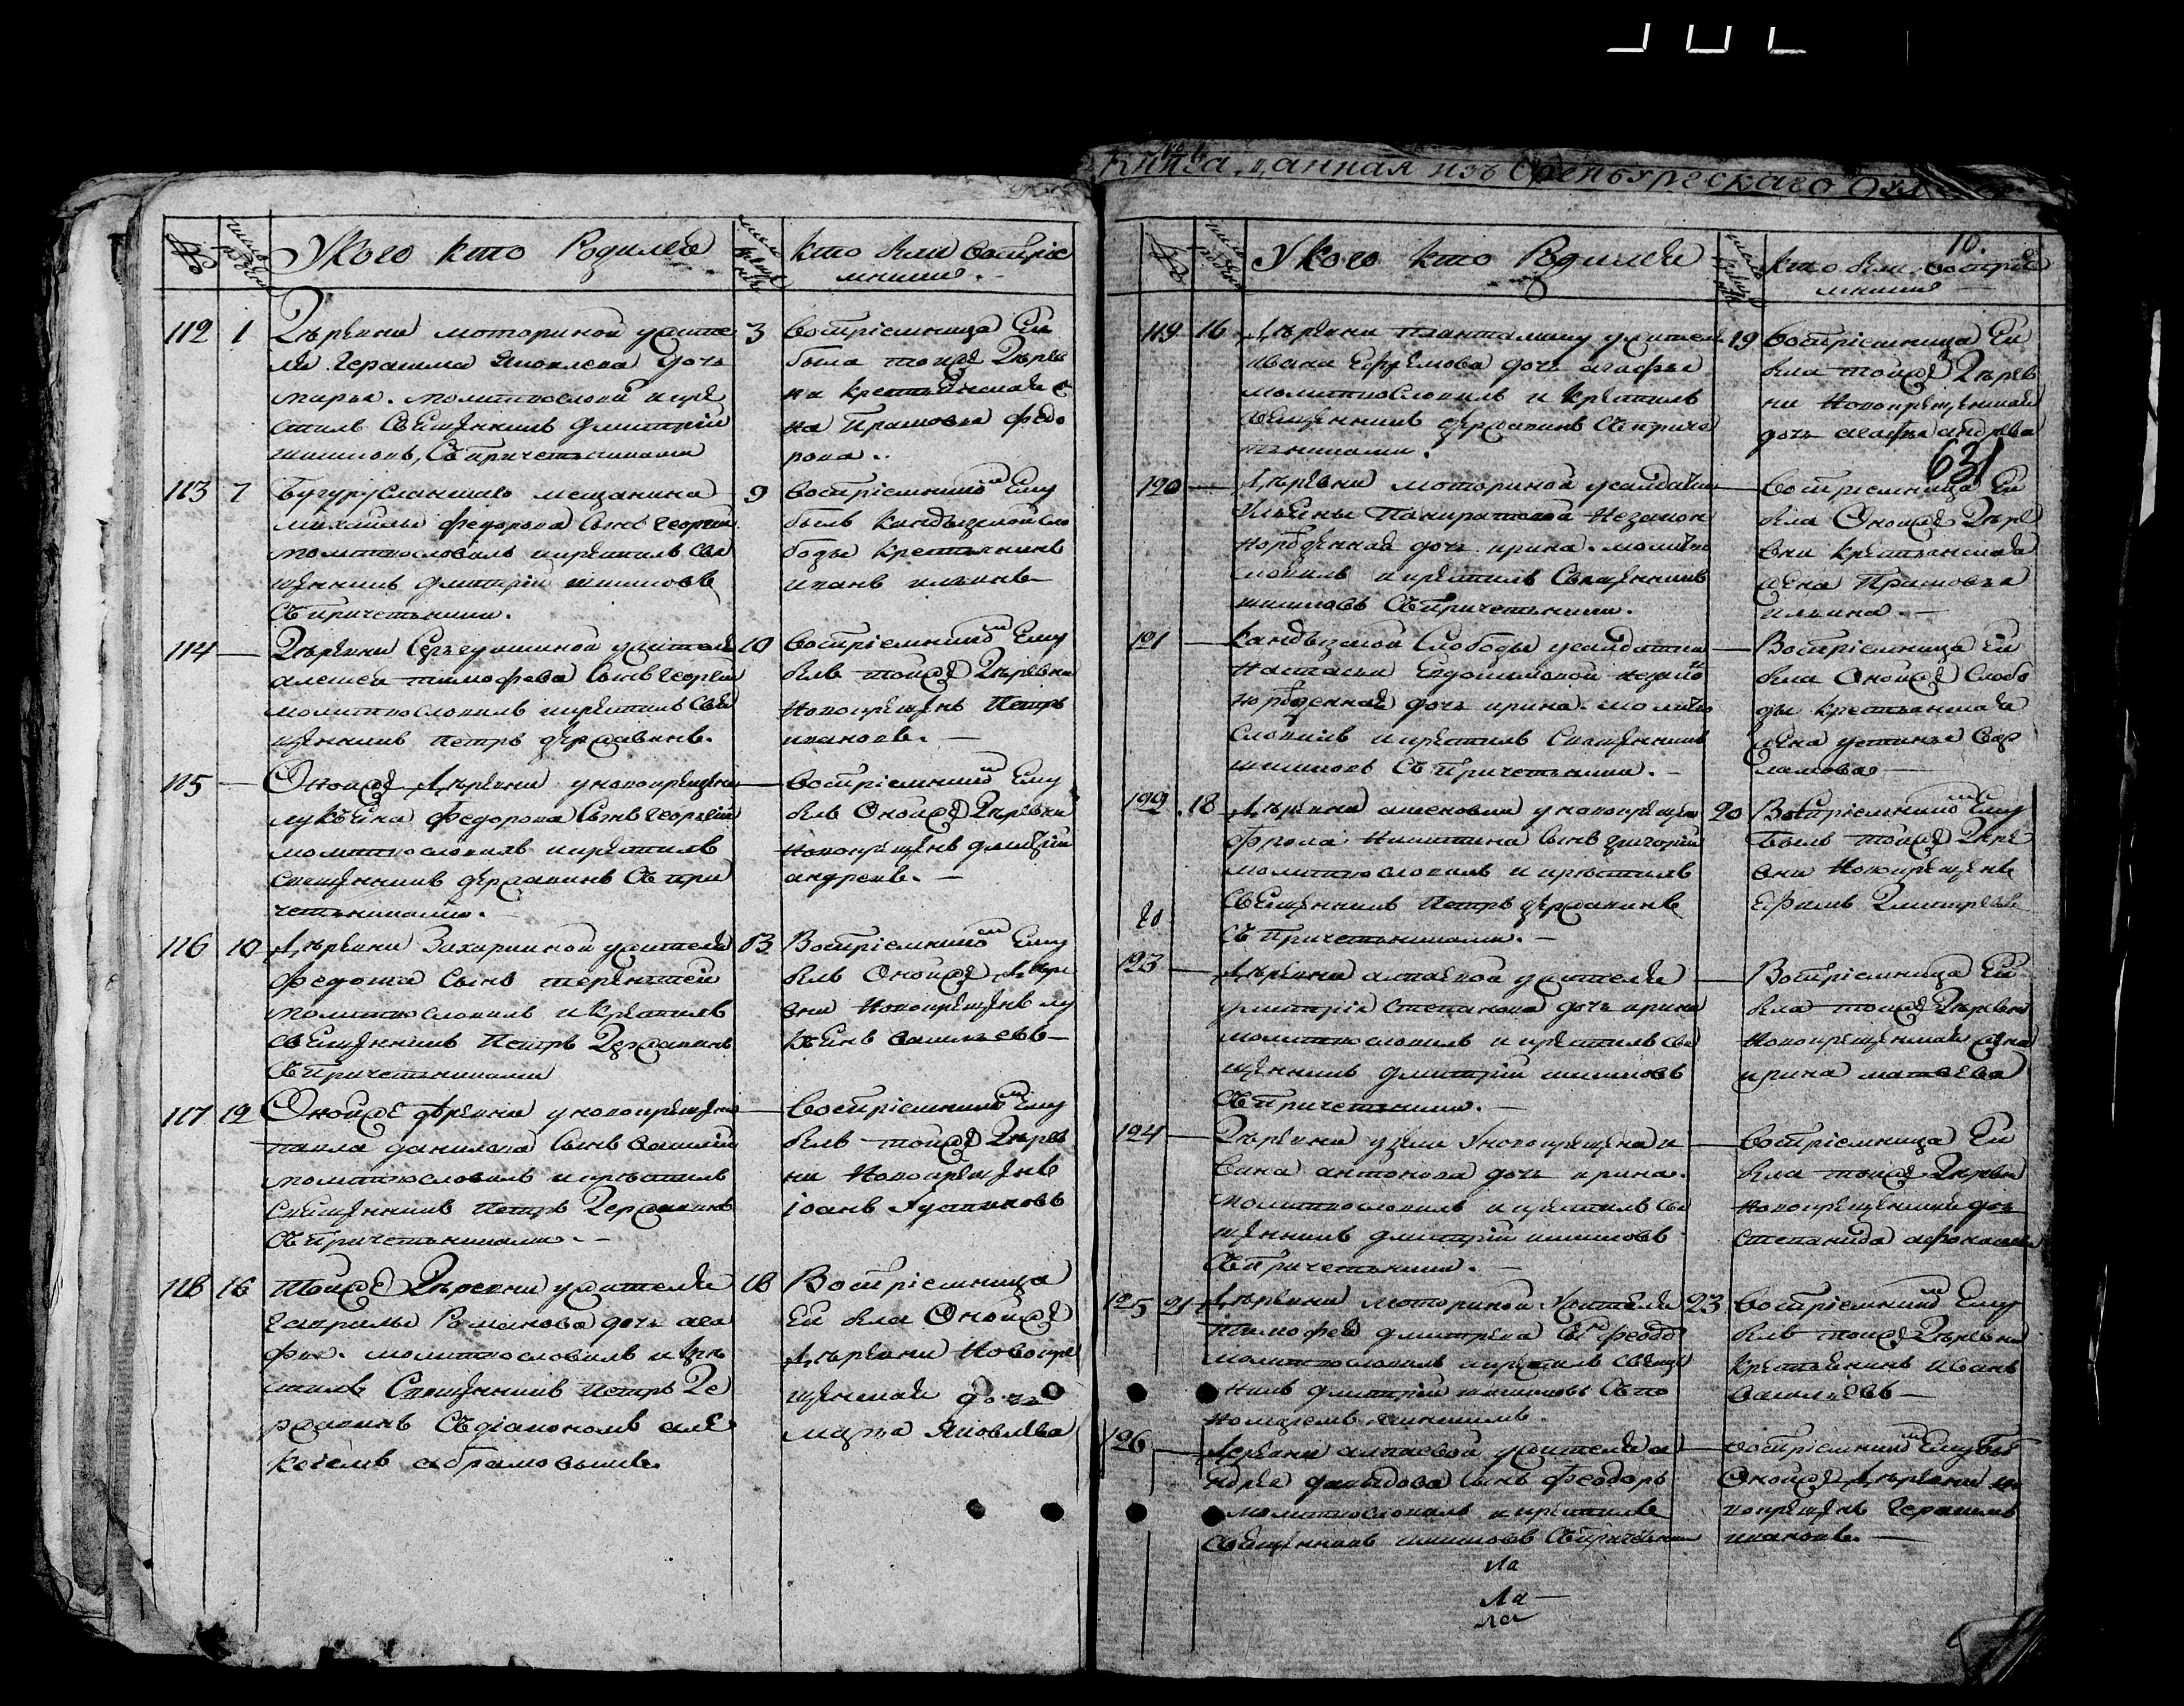 Книга данная изъ Оренбургскаго
№ число рождения У кого кто Родился число крещения кто были восприе
мники.
112 1 Деревни моториной жите
ля Герасима Яковлева дочь
марья. молитвословил и кре
стилъ Священникъ Дмитрій
шишковъ, Съ причетниками
3 восприемница Ей
была тойже Дерев
ни крестьянская
на Прасковья федо
рова.
113 7 Бугурусланскаго мещанина
михайлы федорова Сынъ Георгий
молитвословилъ и крестилъ Свя
щенникъ дмитрій шишковъ
Съ причетники.
9 восприемникомъ Ему
былъ Кандызской Сло
боды крестьянинъ
иванъ ильинъ
114 — Деревни жителя
алексея тимофева Сынъ Георгий
молитвословилъ и крестилъ Свя
щенникъ петръ державинъ.
10 восприемникомъ Ему
былъ тойже Деревни
новокрещенъ Петръ
ивановъ. —
115 — Оной же Деревни у новокрещена
лукьяна Федорова Сынъ Георгий
молитвословилъ и крестилъ
священникъ державинъ Съ при
четниками.
— восприемникомъ Ему
былъ Онойже Деревни
новокрещенъ дмитрій
андреевъ. —
116 10 Деревни Захаркиной жителя
Федота Сынъ терентей
молитвословилъ и крестилъ
священникъ Петръ Державинъ
Съ Причетниками
13 Восприемникомъ Ему
былъ Онойже Дере
вни новокрещенъ лу
кьянъ васильевъ —
117 12 Онойже деревни у новокрещена
павла данилова Сынъ василий
молитвословилъ и крестилъ
священникъ петръ Державинъ
Съ причетниками. —
— восприемникомъ Ему
былъ тойже Дерев
ни новокрещенъ
іоанъ Устиновъ
118 16 Тойже Деревни жителя
Гаврилы Романова дочь ага
фья. молитвословилъ и кре
стилъ Священникъ петръ Де
ржавинъ Съ діакономъ але
ксеемъ абрамовымъ.
18 Восприемница
Ей была Онойже
Деревни новокре
щенская дочь
марья Яковлева
10.
№ число рождения У кого кто Родился число крещения кто были восприе
мники
119 16 Деревни жителя
ивана Ефремова дочь агафья
молитвословилъ и крестилъ
священникъ державинъ Съ приче
тниками.
19 восприемница Ей
была тойже Дерев
ни новокрещенская
дочь агафья андреева
631
120 — Деревни моториной у солдатки
Ульяны Панкратовой незакон
норожденная дочь ирина. молитво
словилъ и крестилъ Священникъ
шишковъ Съ причетники.
— восприемница Ей
была Онойже Дере
вни крестьянская
жена Прасковья
ильина. —
121 — Кандызской Слободы у солдатки
настасьи Евдокимовой незако
норожденная дочь ирина. молитво
словилъ и крестилъ Священникъ
шишковъ Съ Причетники. —
— Восприемница Ей
была Онойже Слобо
ды крестьянская
жена устинья Вар
ламова —
122 18 Деревни у новокрещена
Фрола никитина Сынъ григорий
молитвословилъ и крестилъ
Священникъ Петръ державинъ
Съ Причетниками. —
20 Восприемникомъ Ему
Былъ тойже Дере
вни новокрещенъ
Ефимъ Дмитревъ
20
123 — Деревни алпаевой жителя
дмитрія степанова дочь ирина
молитвословилъ и крестилъ свя
щенникъ дмитрій шишковъ
Съ причетники. —
— Восприемница Ей
была тойже Деревни
новокрещенская жена
ирина матвева
124 — Деревни узели У новокрещена и
вана антонова дочь ирина.
молитвословилъ и крестилъ Свя
щенникъ дмитрій шишковъ
Съ причетники. —
— восприемница Ей
была тойже Деревни
новокрещенская дочь
степанида афонасьева
125 21 Деревни моториной жителя
Тимофея дмитрева Сынъ феодо
молитвословилъ и крестилъ свяще
никъ дмитрій шишковъ Съ по
номаремъ.
23 восприемникомъ Ему
былъ тойже Деревни
крестьянинъ иванъ
васильевъ —
126 — Деревни алпаевой жителя а
ндрея давыдова Сынъ Феодоръ
молитвословилъ и крестилъ
священникъ шишковъ Съ причетники
— восприемникомъ Ему былъ
Онойже Деревни но
вокрещенъ Герасимъ
ивановъ. —
Ла
Ла —
ла